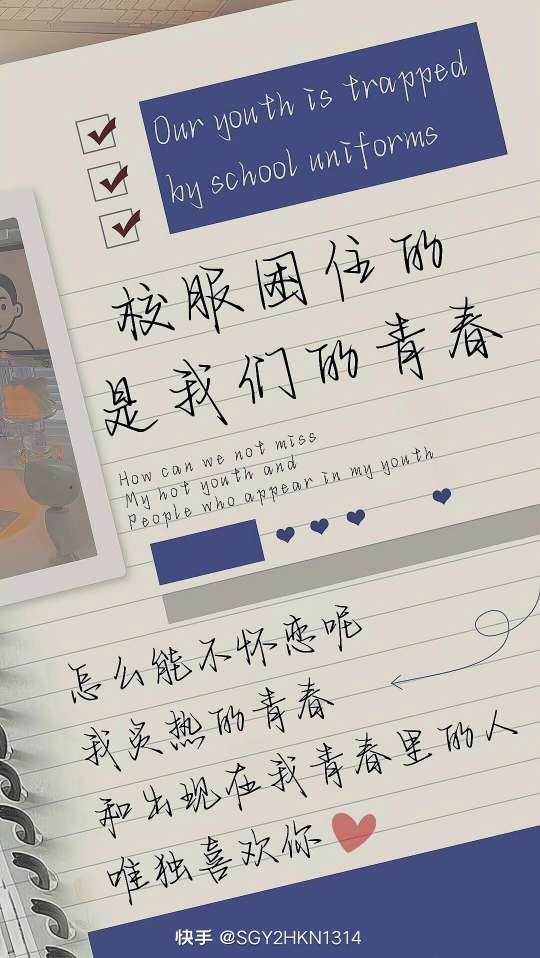 Our youth is trapped
by school uniforms
校服困住的
是我们的青春
How can we not miss
My hot youth and
people who appear in my youth
怎么能不怀恋呢
我炙热的青春
和出现在我青春里的人
唯独喜欢你
快手 @SGY2HKN1314